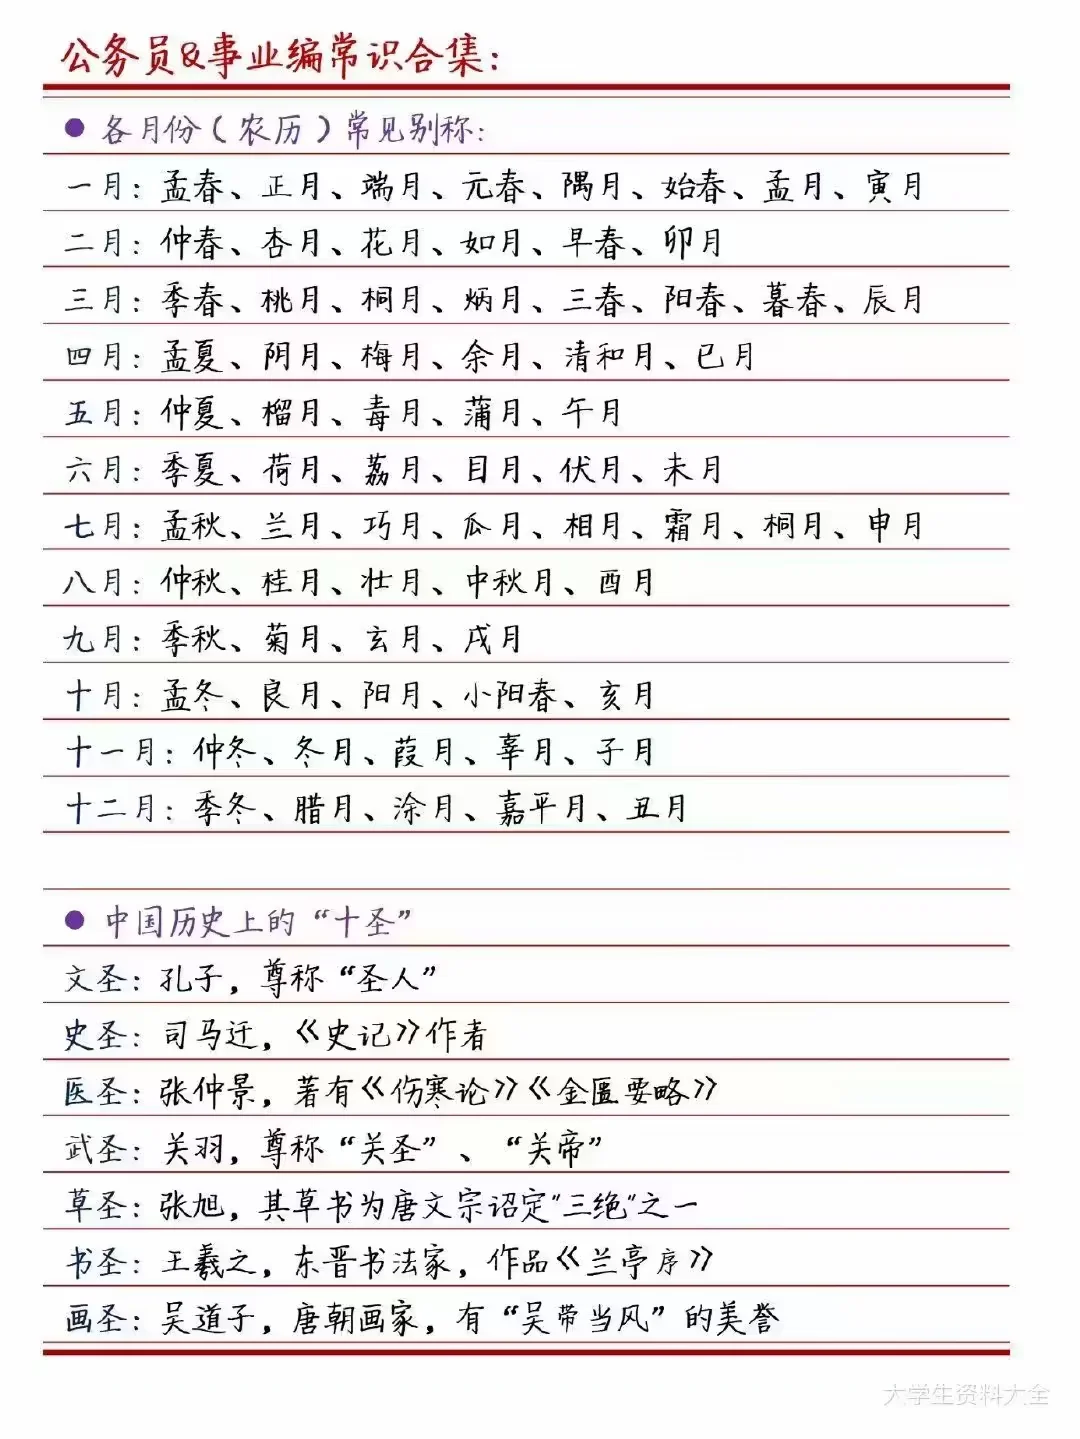 公务员&事业编常识合集：
● 各月份（农历）常见别称：
一月：孟春、正月、端月、元春、隅月、始春、孟月、寅月
二月：仲春、杏月、花月、如月、早春、卯月
三月：季春、桃月、桐月、炳月、三春、阳春、暮春、辰月
四月：孟夏、阴月、梅月、余月、清和月、已月
五月：仲夏、榴月、毒月、蒲月、午月
六月：季夏、荷月、荔月、目月、伏月、未月
七月：孟秋、兰月、巧月、瓜月、相月、霜月、桐月、申月
八月：仲秋、桂月、壮月、中秋月、酉月
九月：季秋、菊月、玄月、戌月
十月：孟冬、良月、阳月、小阳春、亥月
十一月：仲冬、冬月、葭月、辜月、子月
十二月：季冬、腊月、涂月、嘉平月、丑月
● 中国历史上的“十圣”
文圣：孔子，尊称“圣人”
史圣：司马迁，《史记》作者
医圣：张仲景，著有《伤寒论》《金匮要略》
武圣：关羽，尊称“关圣”、“关帝”
草圣：张旭，其草书为唐文宗诏定“三绝”之一
书圣：王羲之，东晋书法家，作品《兰亭序》
画圣：吴道子，唐朝画家，有“吴带当风”的美誉
大学生资料大全